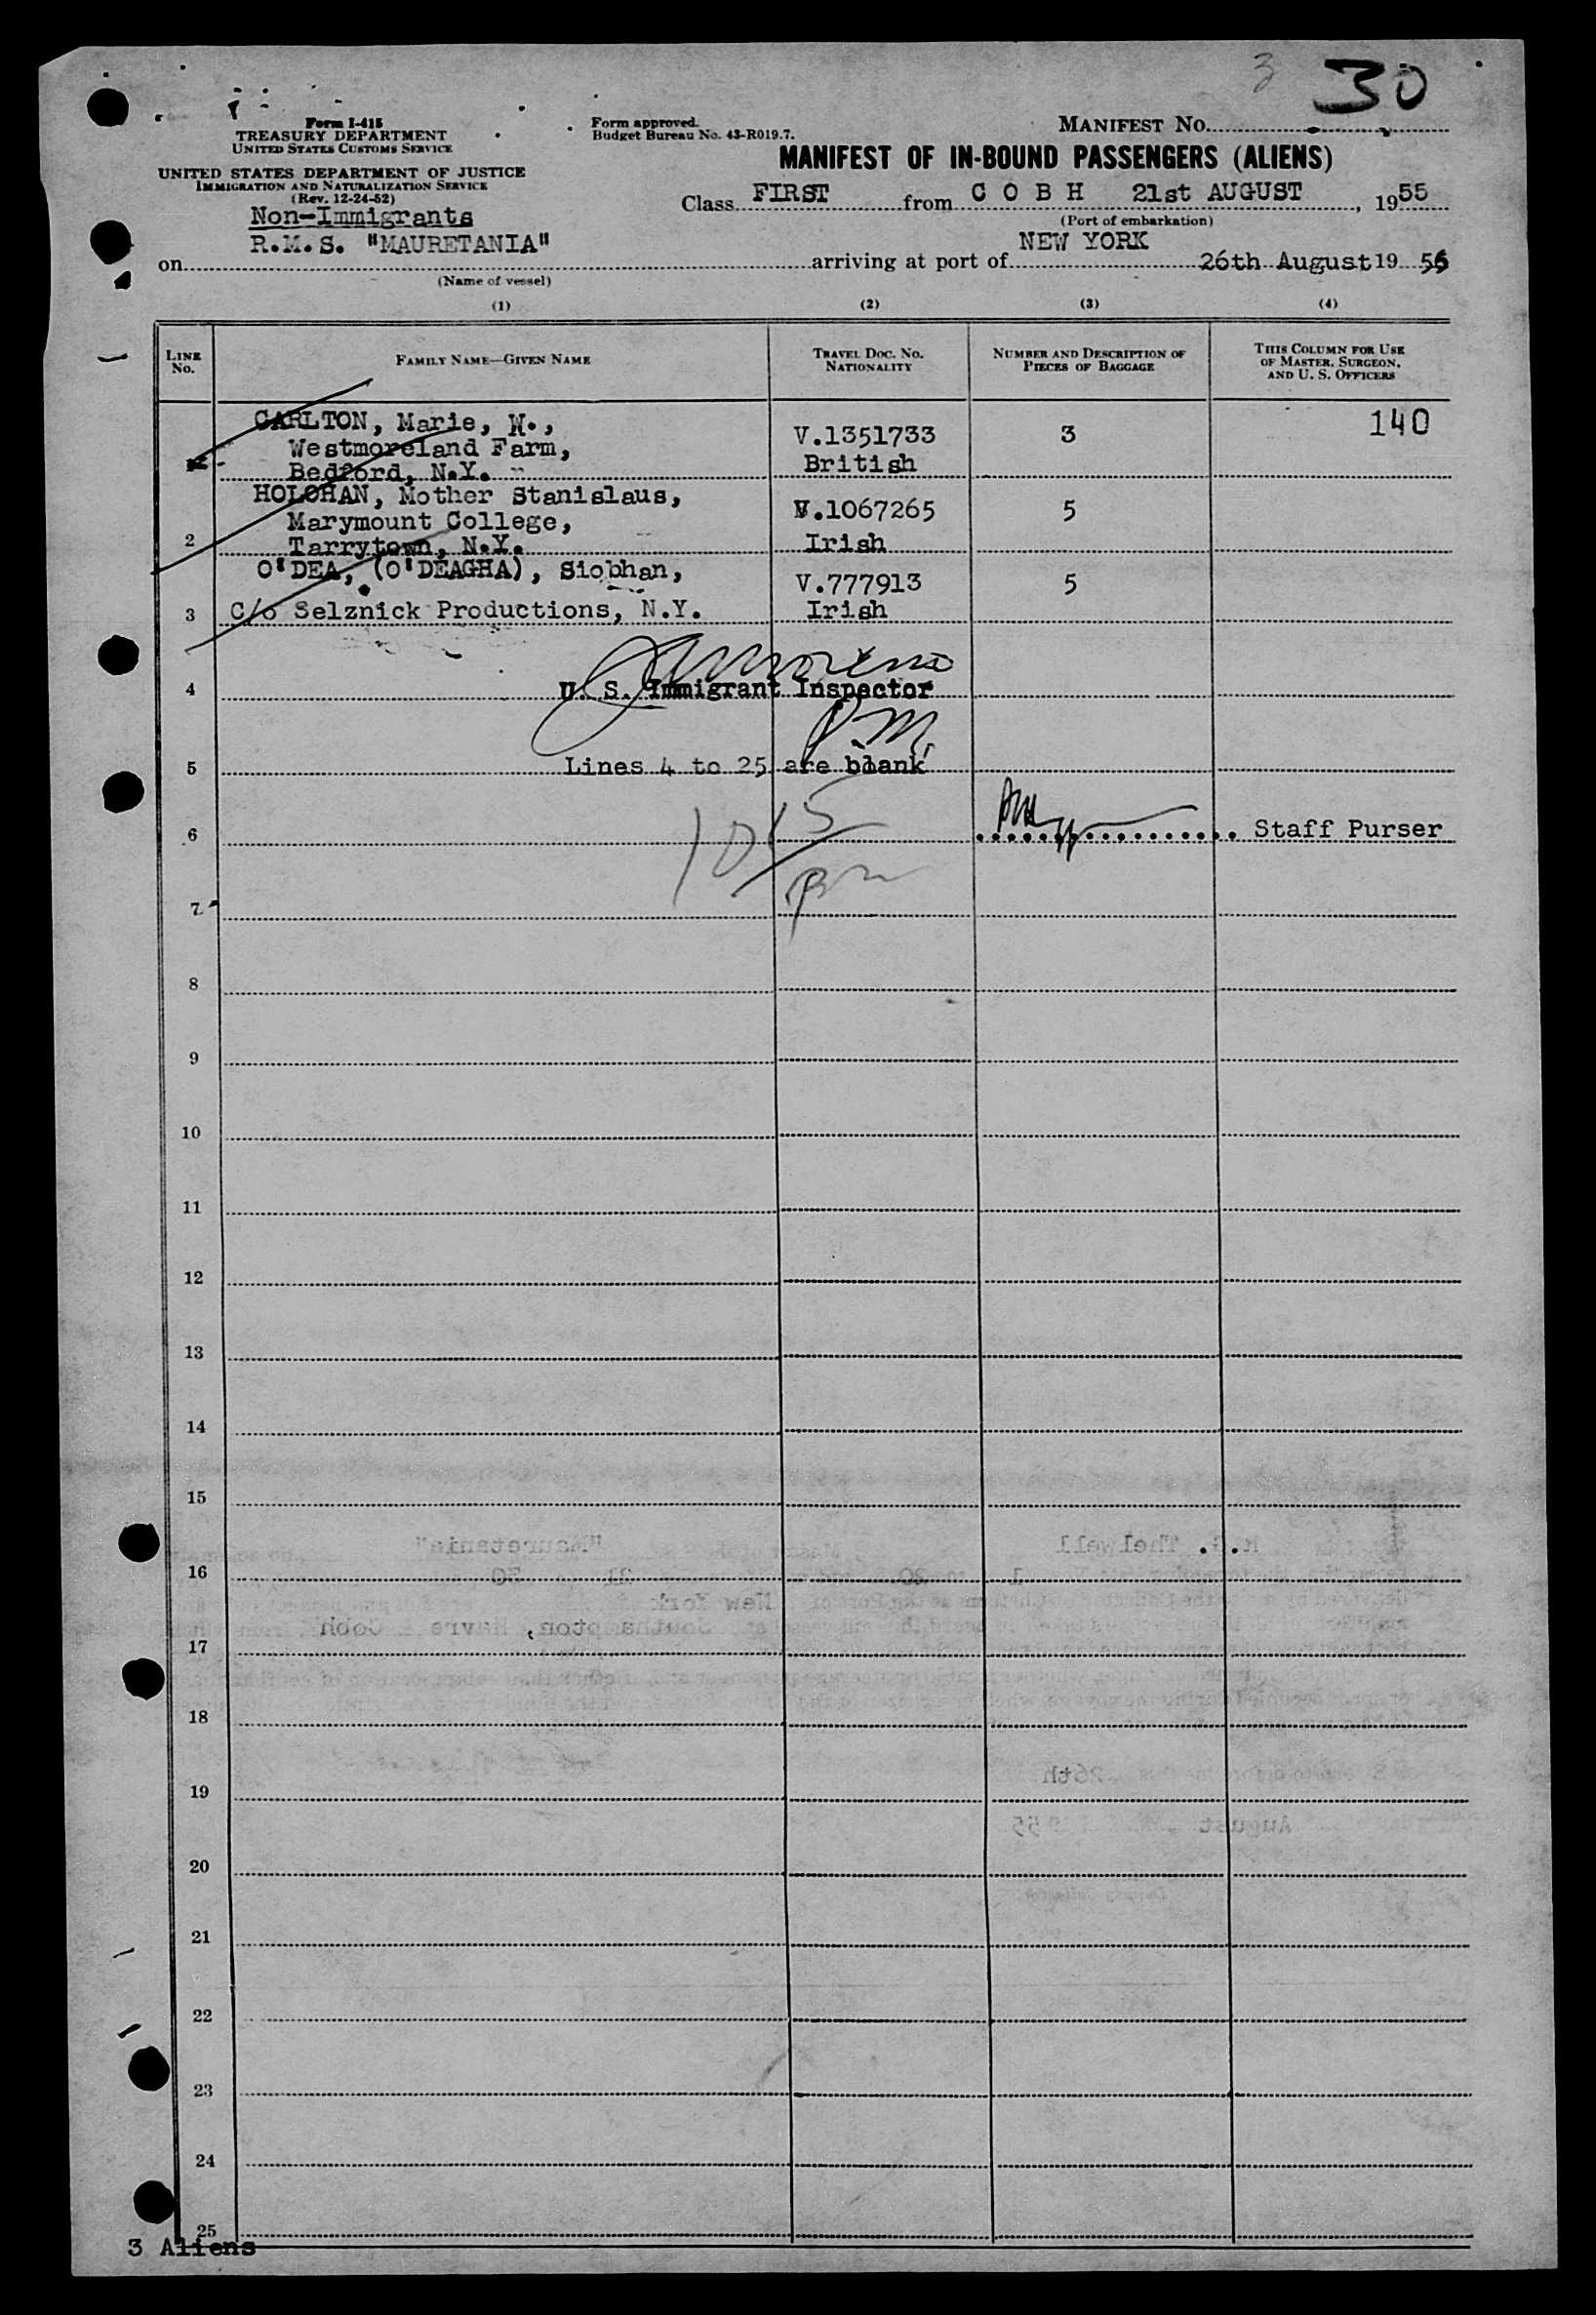 3 30
Form I-415
TREASURY DEPARTMENT
UNITED STATES CUSTOMS SERVICE
Form approved.
Budget Bureau No. 43-R019.7.
MANIFEST NO.
MANIFEST OF IN-BOUND PASSENGERS (ALIENS)
UNITED STATES DEPARTMENT OF JUSTICE
IMMIGRATION AND NATURALIZATION SERVICE
(Rev. 12-24-52)
Non-Immigrants
Class FIRST from C O B H 21st AUGUST, 1955
(Port of embarkation)
on R.M.S. "MAURETANIA" arriving at port of NEW YORK 26th August 19 55
(Name of vessel)
(1) (2) (3) (4)
LINE No. FAMILY NAME—GIVEN NAME TRAVEL DOC. NO. NATIONALITY NUMBER AND DESCRIPTION OF PIECES OF BAGGAGE THIS COLUMN FOR USE OF MASTER, SURGEON, AND U. S. OFFICERS
CARLTON, Marie, W., V.1351733 3 140
Westmoreland Farm, British
Bedford, N.Y.
HOLOHAN, Mother Stanislaus, V.1067265 5
Marymount College,
2 Tarrytown, N.Y. Irish
O'DEA, (O'DEAGHA), Siobhan, V.777913 5
3 C/o Selznick Productions, N.Y. Irish
4 U. S. Immigrant Inspector
P.M.
5 Lines 4 to 25 are blank
6 Staff Purser
1015
pm
7
8
9
10
11
12
13
14
15
16
17
18
19
20
21
22
23
24
25
3 Aliens